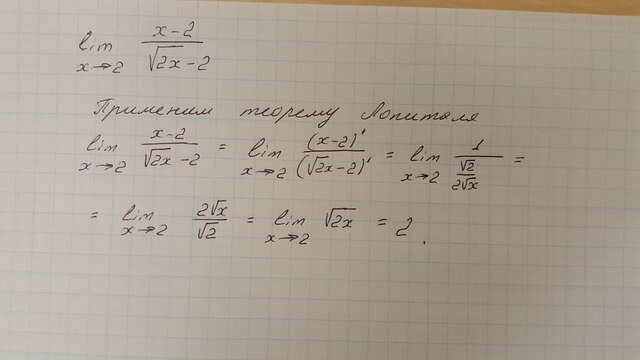 lim x→2 (x-2)/(√2x-2)
Применим теорему Лопиталя
lim x→2 (x-2)/(√2x-2) = lim x→2 (x-2)'/(√2x-2)' = lim x→2 1/(√2/2√x) =
= lim x→2 2√x/√2 = lim x→2 √2x = 2.